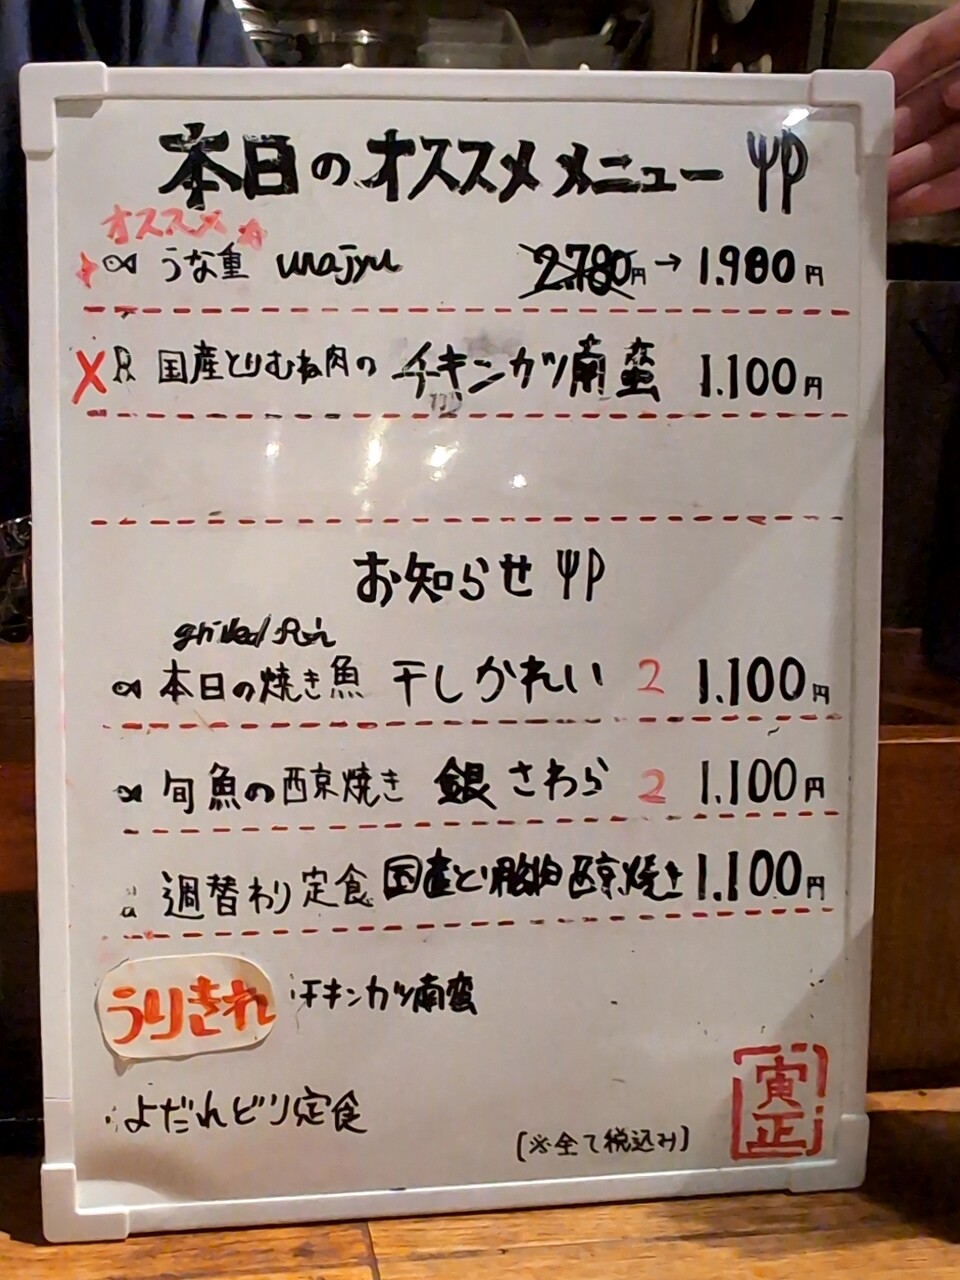 本日のオススメメニュー
オススメ
うな重 unajyu 2.780円→1.980円
X 国産とりむね肉の チキンカツ南蛮 1.100円
お知らせ
grilled fish
本日の焼き魚 干しかれい 2 1.100円
旬魚の西京焼き 銀さわら 2 1.100円
週替わり定食 国産とり胸肉西京焼き 1.100円
うりきれ ・チキンカツ南蛮
・よだれどり定食
[※全て税込み]
寅
正